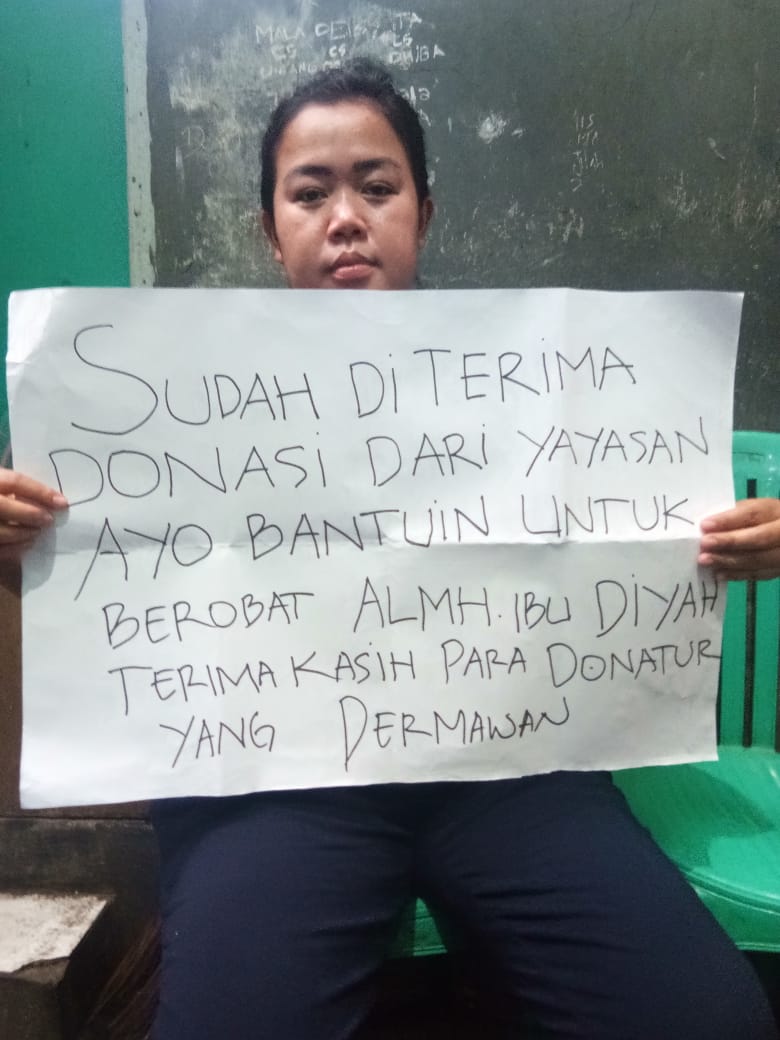 MALA
CS CS CS
SUDAH DiTERiMA
DONASi DARi YAYASAN
AYO BANTUiN UNTUK
BEROBAT ALMH. IBU DiYAH
TERIMA KASIH PARA DONATUR
YANG DERMAWAN